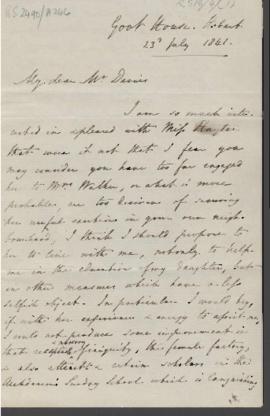 RS 2490/A266
RS19/2/17
Govt House. Hobart
23d July 1841.
My dear Mr Davies
I am so much inte-
rested in & pleased with Miss Hayter
that were it not that I fear you
may consider you have too far engaged
her to Mrs Walker, or what is more
probable, are too desirous of securing
her useful services in your own neigh-
bourhood, I think I should propose to
her to live with me, not only to help
me in the education of my daughter, but
in other measures which have a less
selfish object. In particular I would try,
if with her experience & energy to assist me,
I could not produce some improvement in
that nursery of iniquity, the female factory,
& also attract a certain scholars in the
Sunday School which is